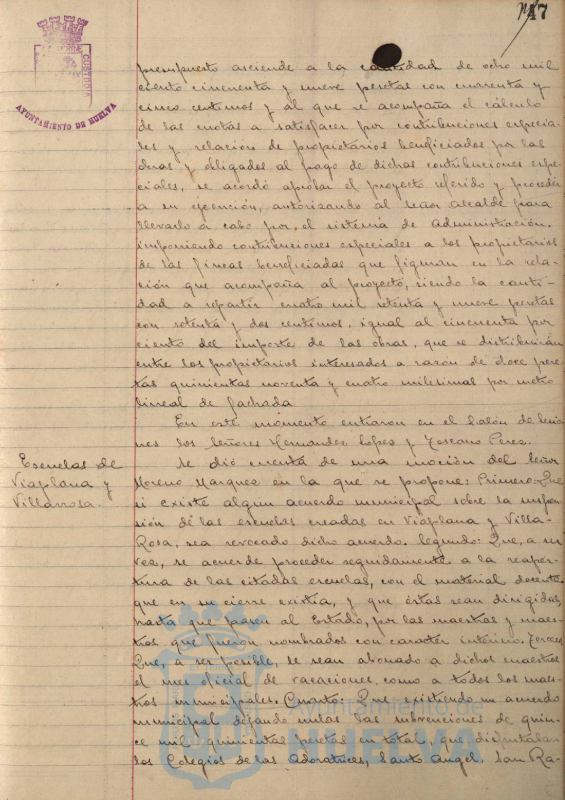 47
AYUNTAMIENTO DE HUELVA
CUSTODIA
presupuesto asciende a la cantidad de ocho mil
ciento cincuenta y nueve pesetas con cuarenta y
cinco centimos y al que se acompaña el cálculo
de las cuotas a satisfacer por contribuciones especia-
les y relación de propietarios beneficiados por las
obras y obligados al pago de dichas contribuciones espe-
ciales, se acordó aprobar el proyecto referido y proceder
a su ejecución, autorizando al Señor Alcalde para
llevarlo a cabo por el sistema de Administración.
imponiendo contribuciones especiales a los propietarios
de las fincas beneficiadas que figuran en la rela-
ción que acompaña al proyecto, siendo la canti-
dad a repartir cuatro mil setenta y nueve pesetas
con setenta y dos centimos, igual al cincuenta por
ciento del importe de las obras, que se distribuirán
entre los propietarios interesados a razón de doce pese-
tas quinientas noventa y cuatro milesimas por metro
lineal de fachada
En este momento entraron en el Salón de Sesio-
nes los Señores Hernandez Lopez y Toscano Perez.
Escuelas de
Viaplana y
Villarrosa.
Se dió cuenta de una moción del Señor
Moreno Marquez en la que se propone: Primero: Que
si existe algún acuerdo municipal sobre la supre-
sión de las escuelas creadas en Viaplana y Villa-
Rosa, sea revocado dicho acuerdo. Segundo: Que, a su
vez, se acuerde proceder seguidamente a la reaper-
tura de las citadas escuelas, con el material docente
que en su cierre existia, y que éstas sean dirigidas,
hasta que pasen al Estado, por las maestras y maes-
tros que fueron nombrados con caracter interino. Tercero:
Que, a ser posible, se sean abonado a dichos maestros
el mes oficial de vacaciones, como a todos los maes-
tros municipales. Cuarto: Que existiendo un acuerdo
municipal dejando nulas las subvenciones de quin-
ce mil quinientas pesetas en total, que disfrutaban
los Colegios de las Adoratrices, Santo Angel, San Ra-
Ayuntamiento de
HUELVA